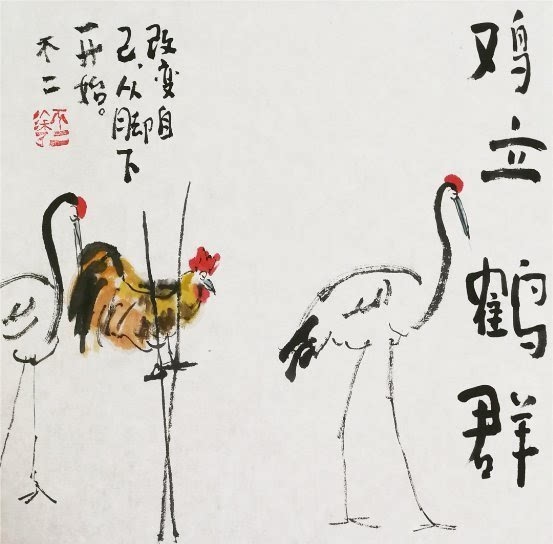 鸡立鹤群
改变自
己，从脚下
开始。
不二